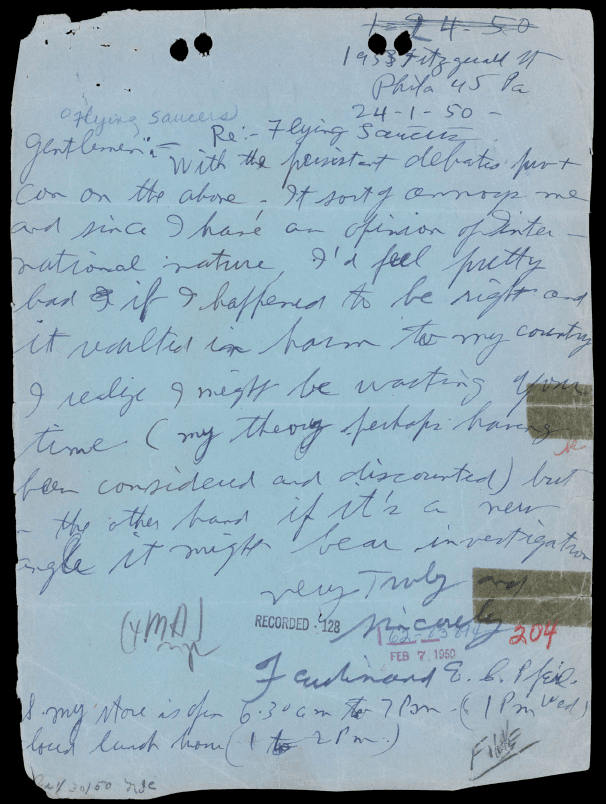 1-24-50
1953 Fitzgerald St
Phila 45 Pa
24-1-50-
"Flying Saucers"
Re:- Flying Saucers
Gentlemen:-
With the persistant debates pro +
con on the above. It sort of annoys me
and since I have an opinion of Inter-
national nature, I'd feel pretty
bad if I happened to be right and
it resulted in harm to my country
I realize I might be wasting your
time (my theory perhaps having
been considered and discounted) but
- the other hand if it's a new
angle it might bear investigation
very Truly and
Sincerely
(YMA)
RECORDED 128
62-83894
204
FEB 7 1950
Ferdinand E. C. Pfeil
S. my store is open 6.30 am to 7 Pm. (1 Pm Wed)
losed lunch hour (1 to 2 Pm.)
FILE